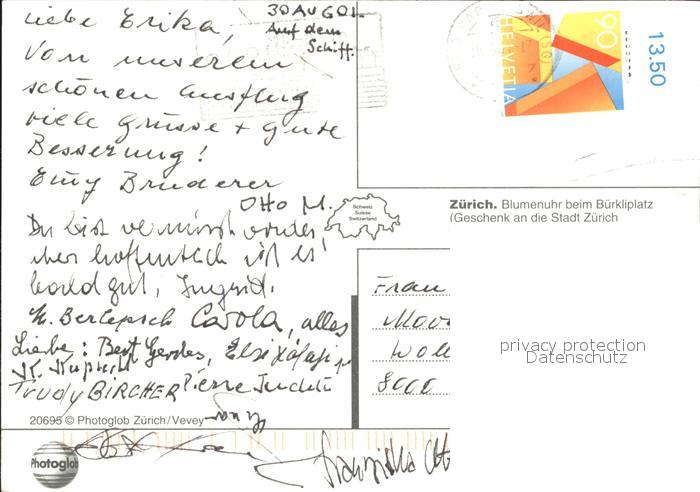 30 AUG 01.
Auf dem
Schiff.
Liebe Erika,
von unserem
schönen Ausflug
viele Grüsse + gute
Besserung!
Emy Bruderer
Otto M.
Du bist vermisst worden,
aber hoffentlich ist es
bald gut, Ingrid.
Berlepsch Carola, alles
Liebe: Gerdes, Elsi
K. Ruprecht
Trudy BIRCHER Pierre
20695 © Photoglob Zürich/Vevey
Photoglob
HELVETIA
90
13.50
Schweiz
Suisse
Switzerland
Zürich. Blumenuhr beim Bürkliplatz
(Geschenk an die Stadt Zürich
Frau
8000
privacy protection
Datenschutz